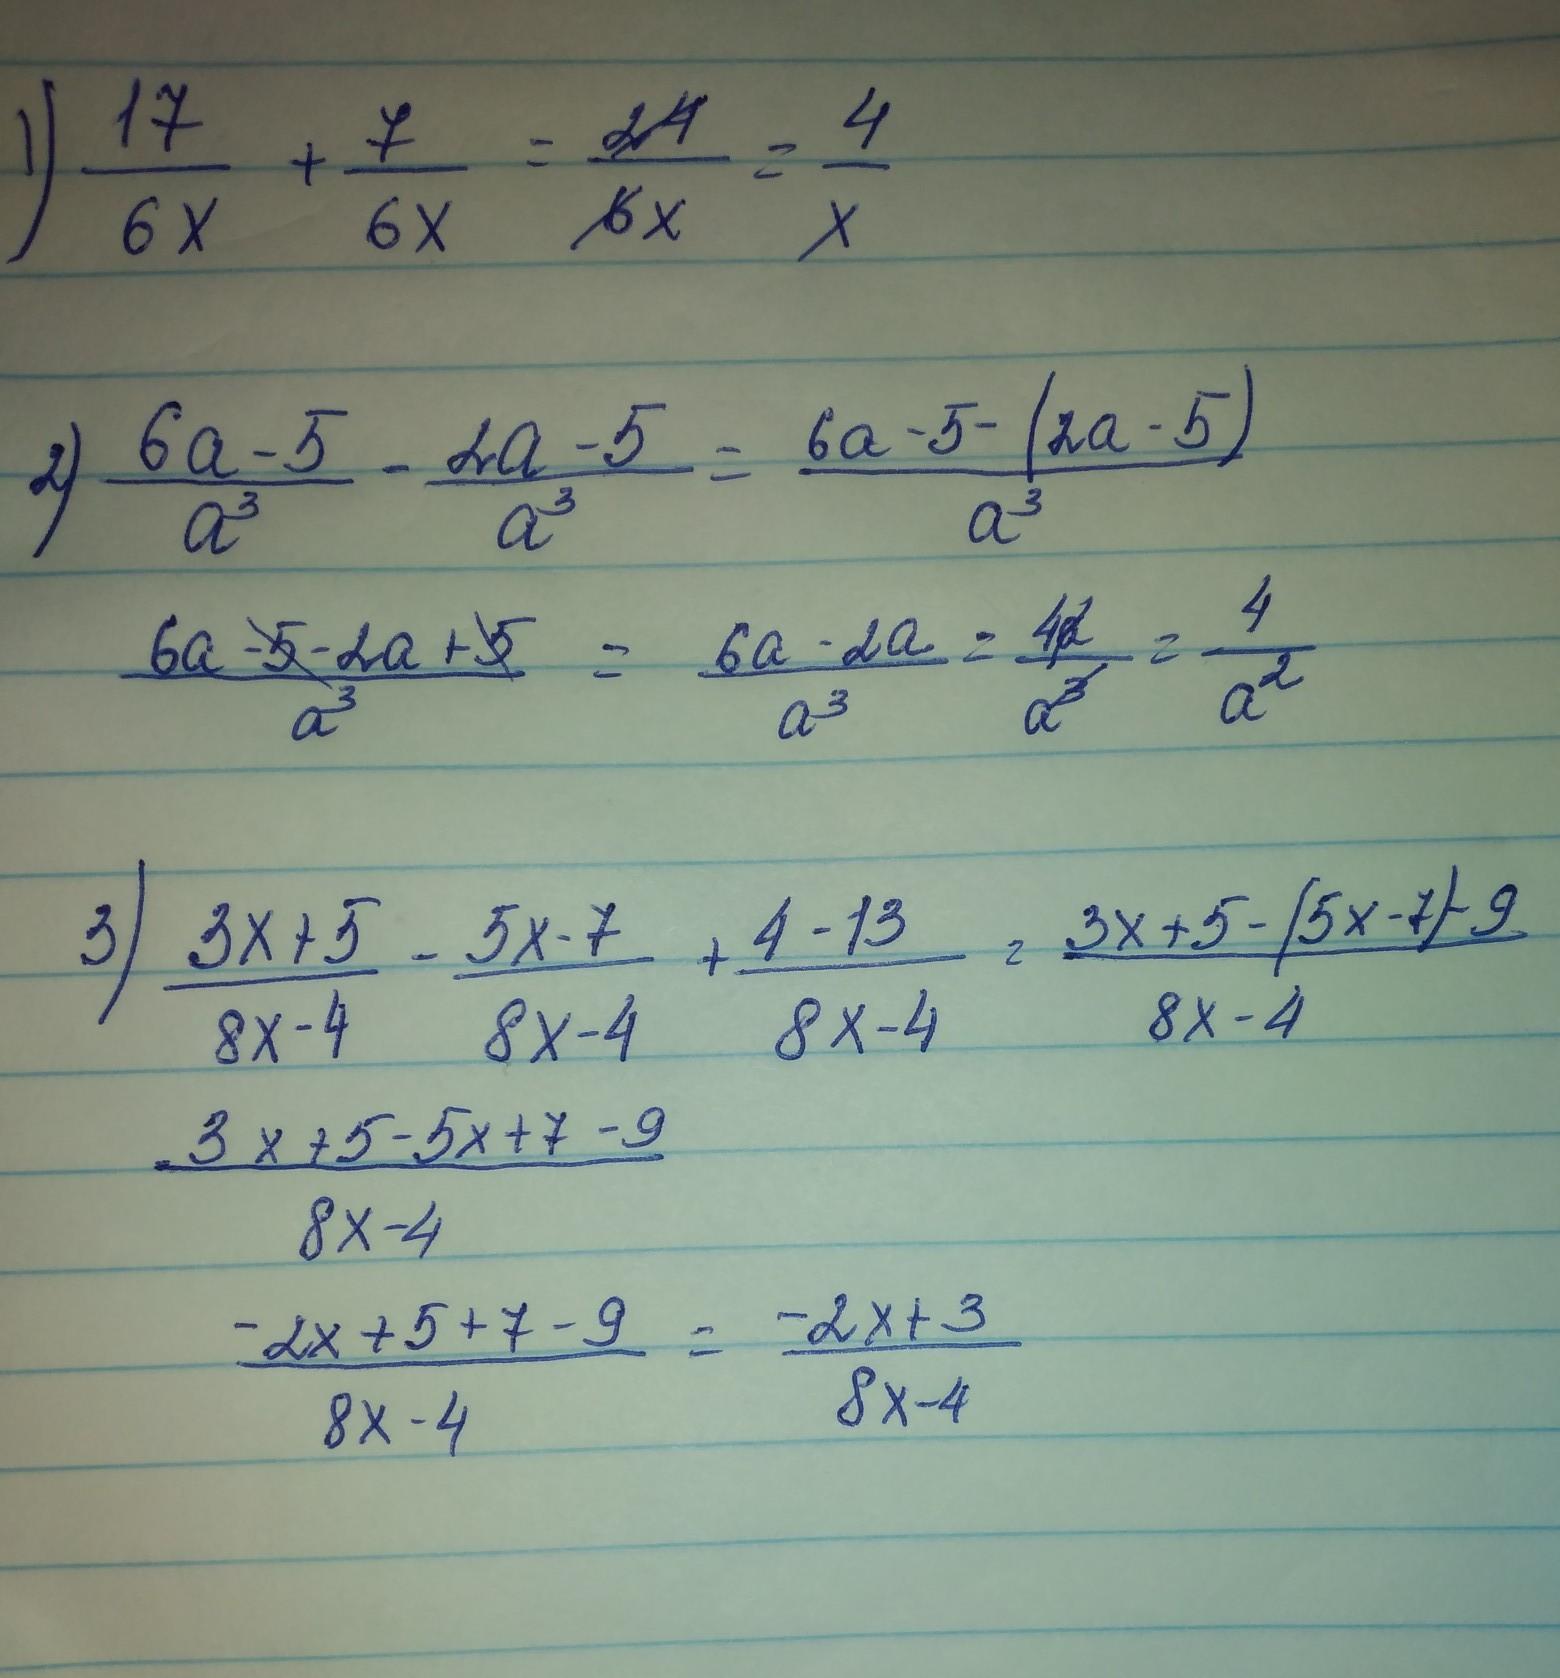 1) 17/6x + 7/6x = 24/6x = 4/x
2) (6a-5)/a³ - (2a-5)/a³ = (6a-5-(2a-5))/a³
(6a-5-2a+5)/a³ = (6a-2a)/a³ = 4a/a³ = 4/a²
3) (3x+5)/(8x-4) - (5x-7)/(8x-4) + (4-13)/(8x-4) = (3x+5-(5x-7)-9)/(8x-4)
(3x+5-5x+7-9)/(8x-4)
(-2x+5+7-9)/(8x-4) = (-2x+3)/(8x-4)